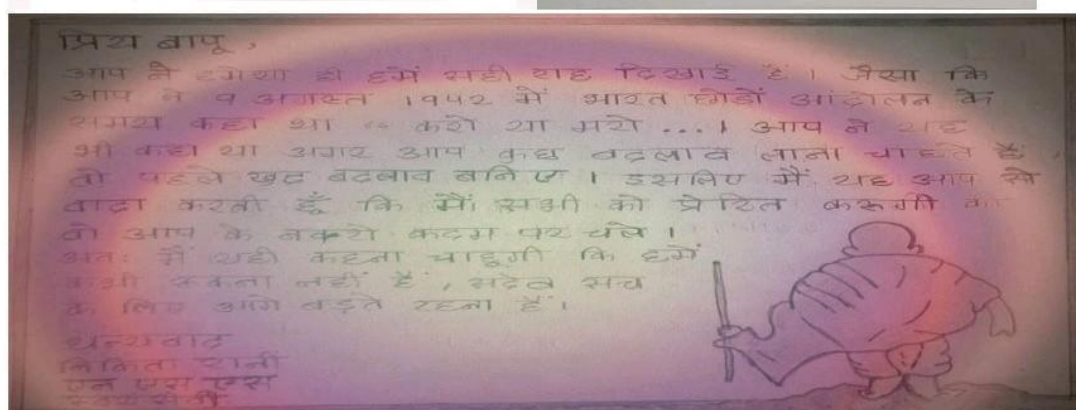 प्रिय बापू,
आप ने हमेशा ही हमें सही राह दिखाई हैं। जैसा कि
आप ने ९ अगस्त १९४२ में भारत छोडों आंदोलन के
समय कहा था “ करो या मरो ...। आप ने यह
भी कहा था अगर आप कुछ बदलाव लाना चाहते हैं,
तो पहले खुद बदलाव बनिए। इसलिए मैं यह आप से
वादा करती हूँ कि मैं सभी को प्रेरित करूगी की
वो आप के नक्शे कदम पर चले।
अतः मैं यही कहना चाहूगी कि हमें
कभी रूकना नहीं हैं, सदैव सच
के लिए आगे बड़ते रहना हैं।
धन्यवाद
रानी
एन एस एस